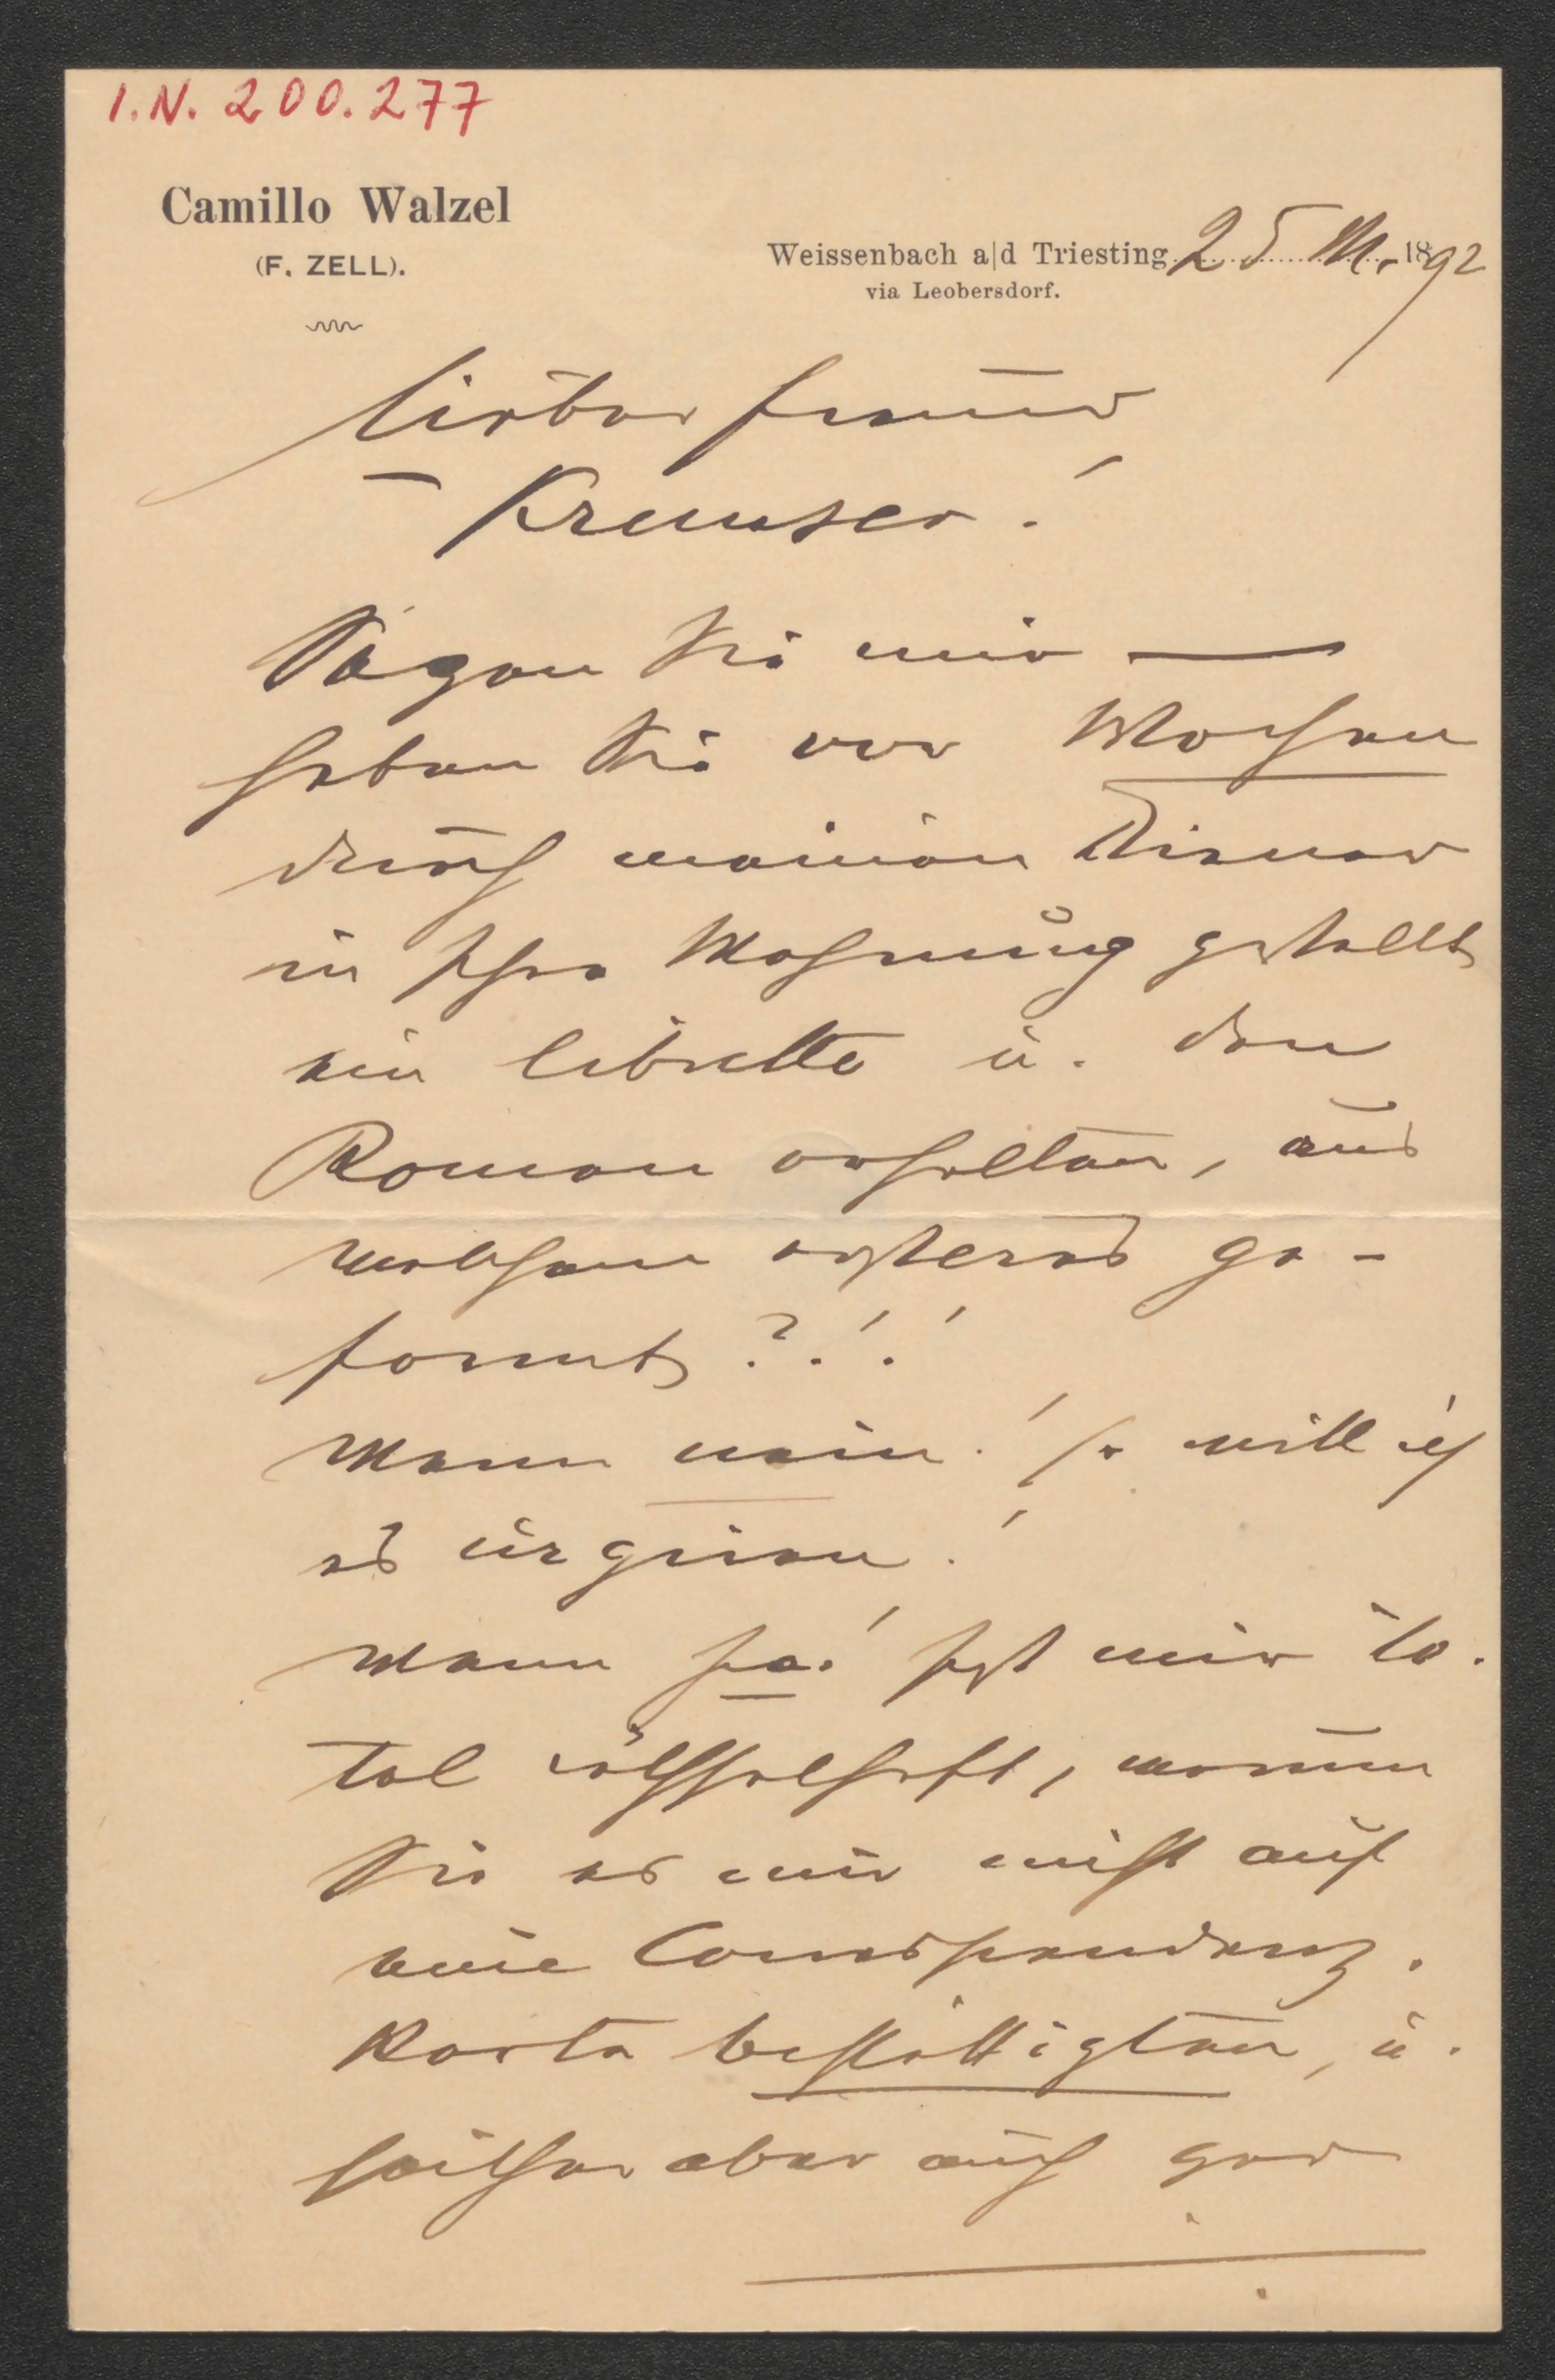 I.N. 200.277
Camillo Walzel
(F. ZELL).
Weissenbach a|d Triesting 25 M. 1892
via Leobersdorf.
Lieber Freund
Kremser!
Sagen Sie mir —
haben Sie vor Wochen
durch meinen Diener
in Ihre Wohnung gestellt
ein Libretto u. den
Roman erhalten, aus
welchem ersteres ge-
formt?!!
Wenn nein! so will ich
es urgiren!
Wenn ja! ist mir to-
tal räthselhaft, warum
Sie es mir nicht auf
eine Correspondenz-
Karte bestättigten, u.
seither aber auch gar